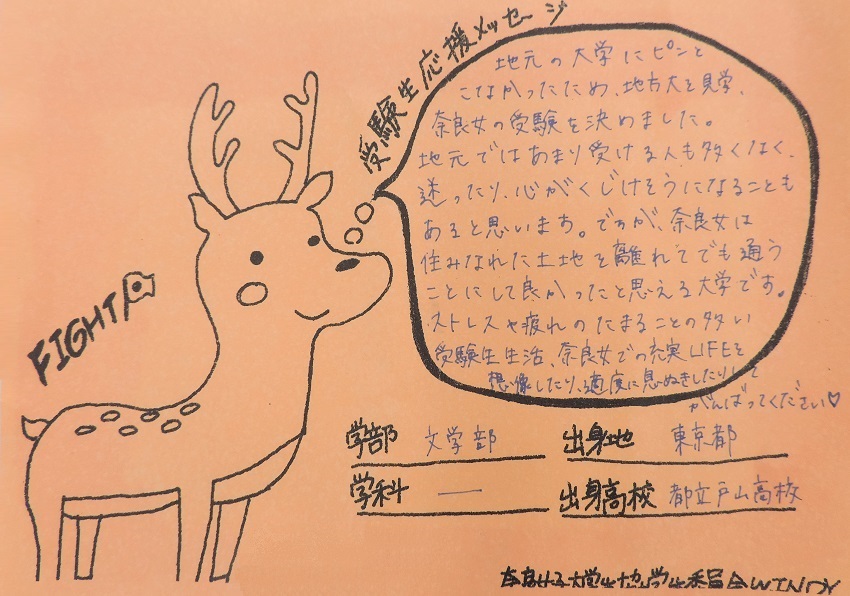 受験生応援メッセージ
地元の大学にピンと
こなかったため、地方大を見学、
奈良女の受験を決めました。
地元ではあまり受ける人も多くなく、
迷ったり、心がくじけそうになることも
あると思います。ですが、奈良女は
住みなれた土地を離れてでも通う
ことにして良かったと思える大学です。
ストレスや疲れのたまることの多い
受験生生活、奈良女での充実LIFEを
想像したり、適度に息ぬきしたりして
がんばってください♡
FIGHT!
学部 文学部
出身地 東京都
学科 ―
出身高校 都立戸山高校
奈良女子大学生協学生委員会WINDY